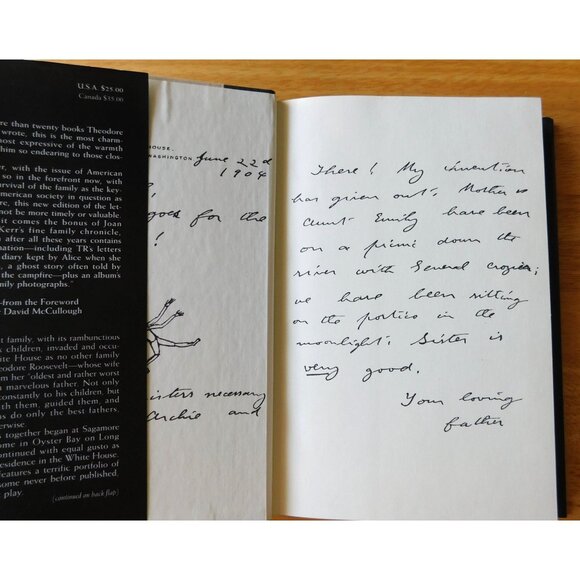 U.S.A. $25.00
Canada $35.00
re than twenty books Theodore
wrote, this is the most charm-
ost expressive of the warmth
him so endearing to those clos-
er, with the issue of American
so in the forefront now, with
urvival of the family as the key-
merican society in question as
re, this new edition of the let-
ot be more timely or valuable.
it comes the bonus of Joan
Kerr's fine family chronicle,
n after all these years contains
mation—including TR's letters
diary kept by Alice when she
, a ghost story often told by
the campfire—plus an album's
mily photographs."
—from the Foreword
David McCullough
t family, with its rambunctious
x children, invaded and occu-
hite House as no other family
eodore Roosevelt—whose wife
m her "oldest and rather worst
n marvelous father. Not only
constantly to his children, but
ith them, guided them, and
s do only the best fathers,
erwise.
s together began at Sagamore
ome in Oyster Bay on Long
ontinued with equal gusto as
esidence in the White House.
features a terrific portfolio of
some never before published.
play.
(continued on back flap)
HOUSE.
WASHINGTON.
June 22d
1904
goes for the
!
sisters necessary
Archie and
There! My invention
has given out. Mother &
Aunt Emily have been
on a picnic down the
river with General Crozier;
we have been sitting
on the portico in the
moonlight. Sister is
very good.
Your loving
father